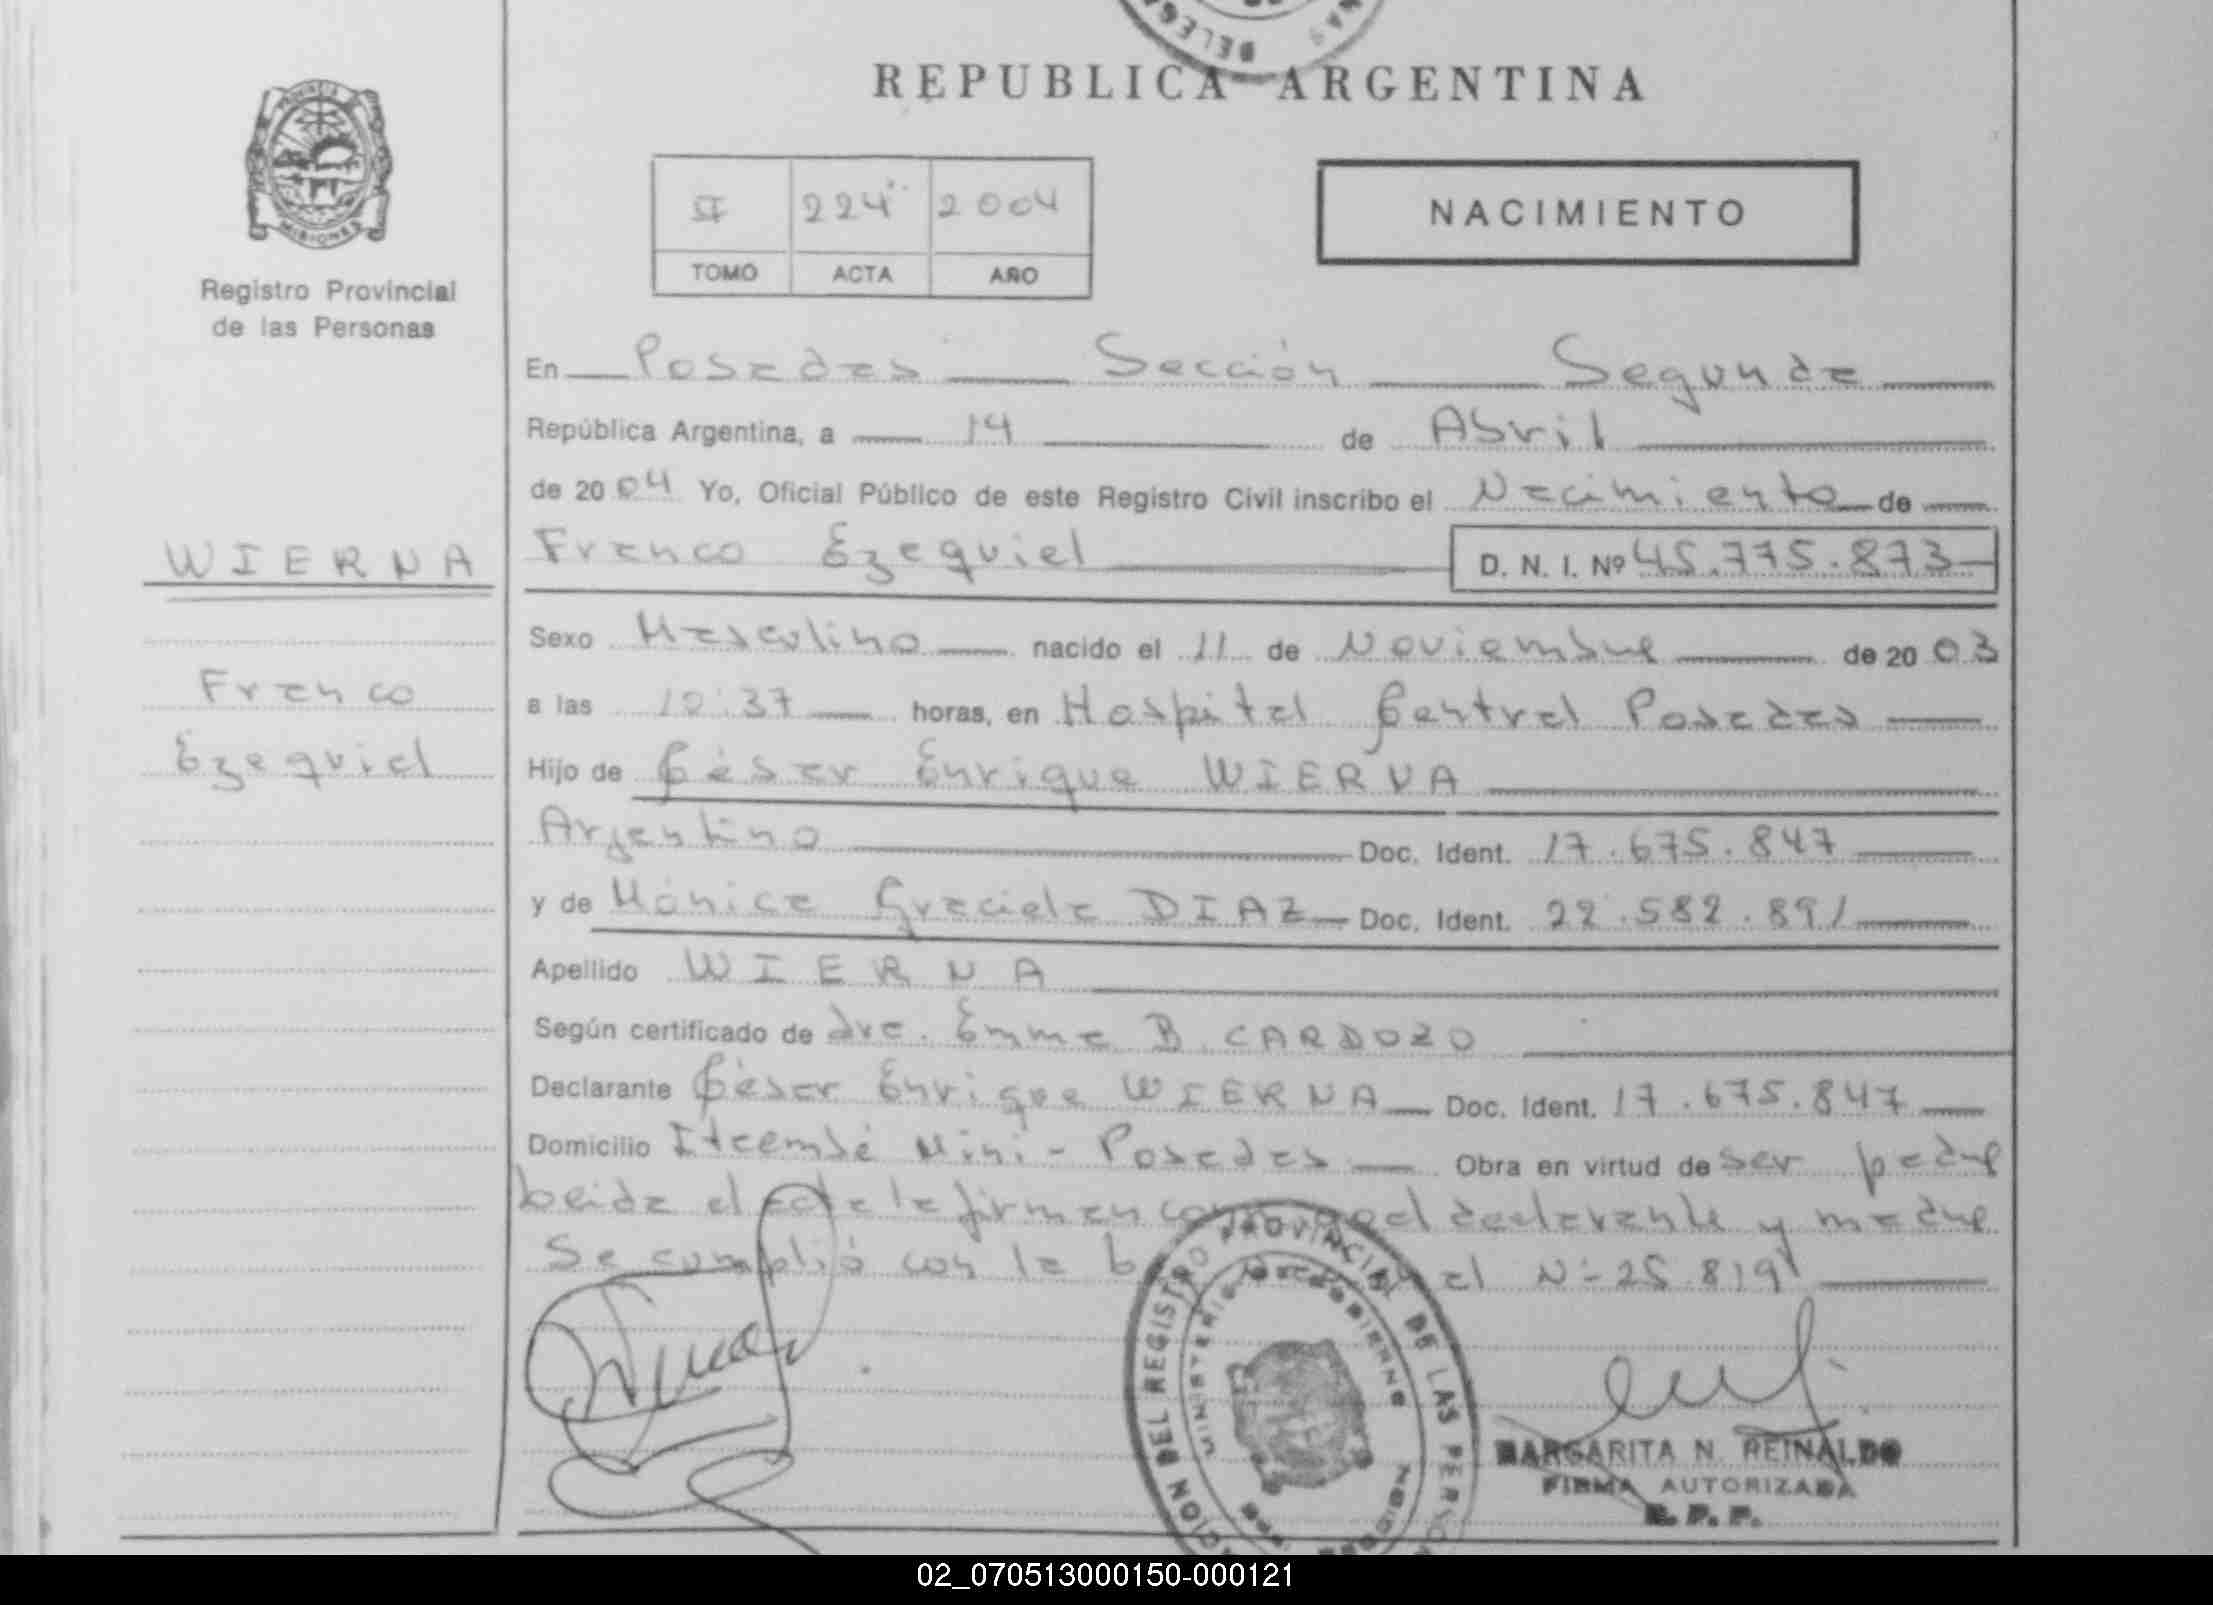 REPUBLICA ARGENTINA
PROVINCIA DE
MISIONES
Registro Provincial
de las Personas
II 224 2004
TOMO ACTA AÑO
NACIMIENTO
En Posadas Sección Segunda
República Argentina, a 14 de Abril
de 2004 Yo, Oficial Público de este Registro Civil inscribo el Nacimiento de
WIERNA
Franco
Ezequiel
Franco Ezequiel D. N. I. Nº 45.775.873
Sexo Masculino nacido el 11 de Noviembre de 2003
a las 10:37 horas, en Hospital Central Posadas
Hijo de César Enrique WIERNA
Argentino Doc. Ident. 17.675.847
y de Mónica Graciela DIAZ Doc. Ident. 22.582.891
Apellido WIERNA
Según certificado de dra. Emma B. CARDOZO
Declarante César Enrique WIERNA Doc. Ident. 17.675.847
Domicilio Itaembé Mini - Posadas Obra en virtud de ser padre
Leida el acta la firman el declarante y madre
Se cumplió con la N- 25.819
REGISTRO PROVINCIAL DE LAS
MINISTERIO DE GOBIERNO
MARGARITA N. REINALDO
FIRMA AUTORIZADA
R. P. P.
02_070513000150-000121